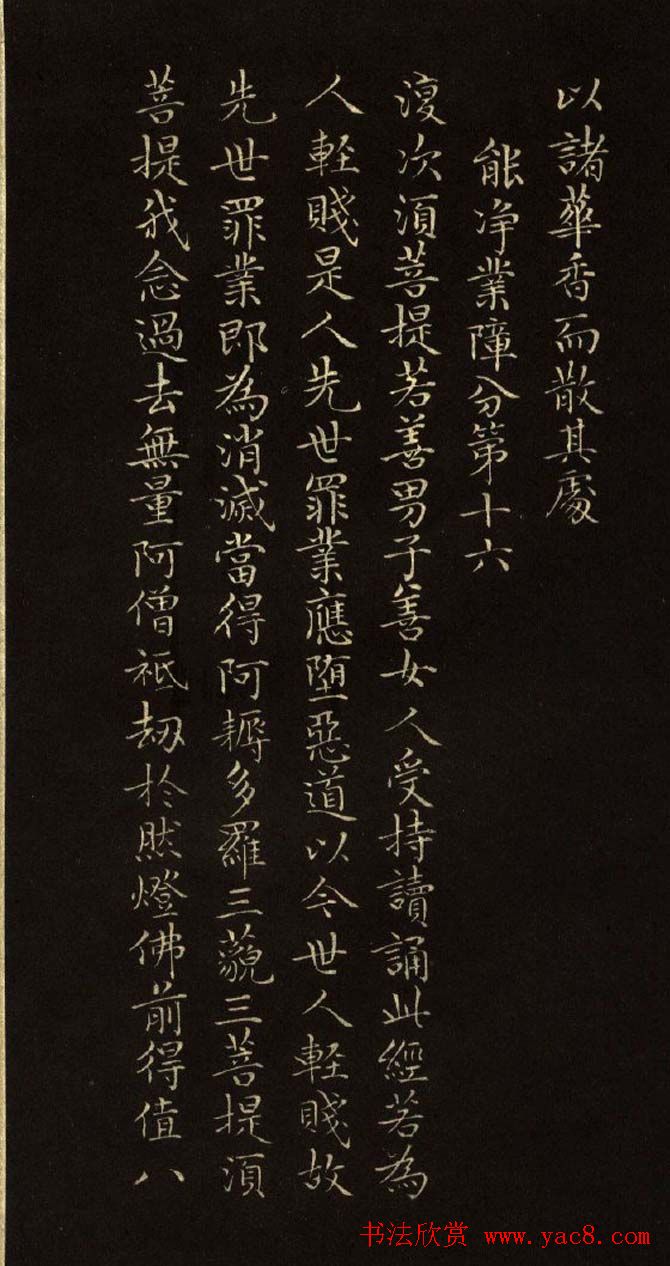 以諸華香而散其處
能净業障分第十六
復次須菩提若善男子善女人受持讀誦此經若為
人輕賤是人先世罪業應堕惡道以今世人輕賤故
先世罪業即為消滅當得阿耨多羅三藐三菩提須
菩提我念過去無量阿僧祇劫於然燈佛前得值八
书法欣赏 www.yac8.com